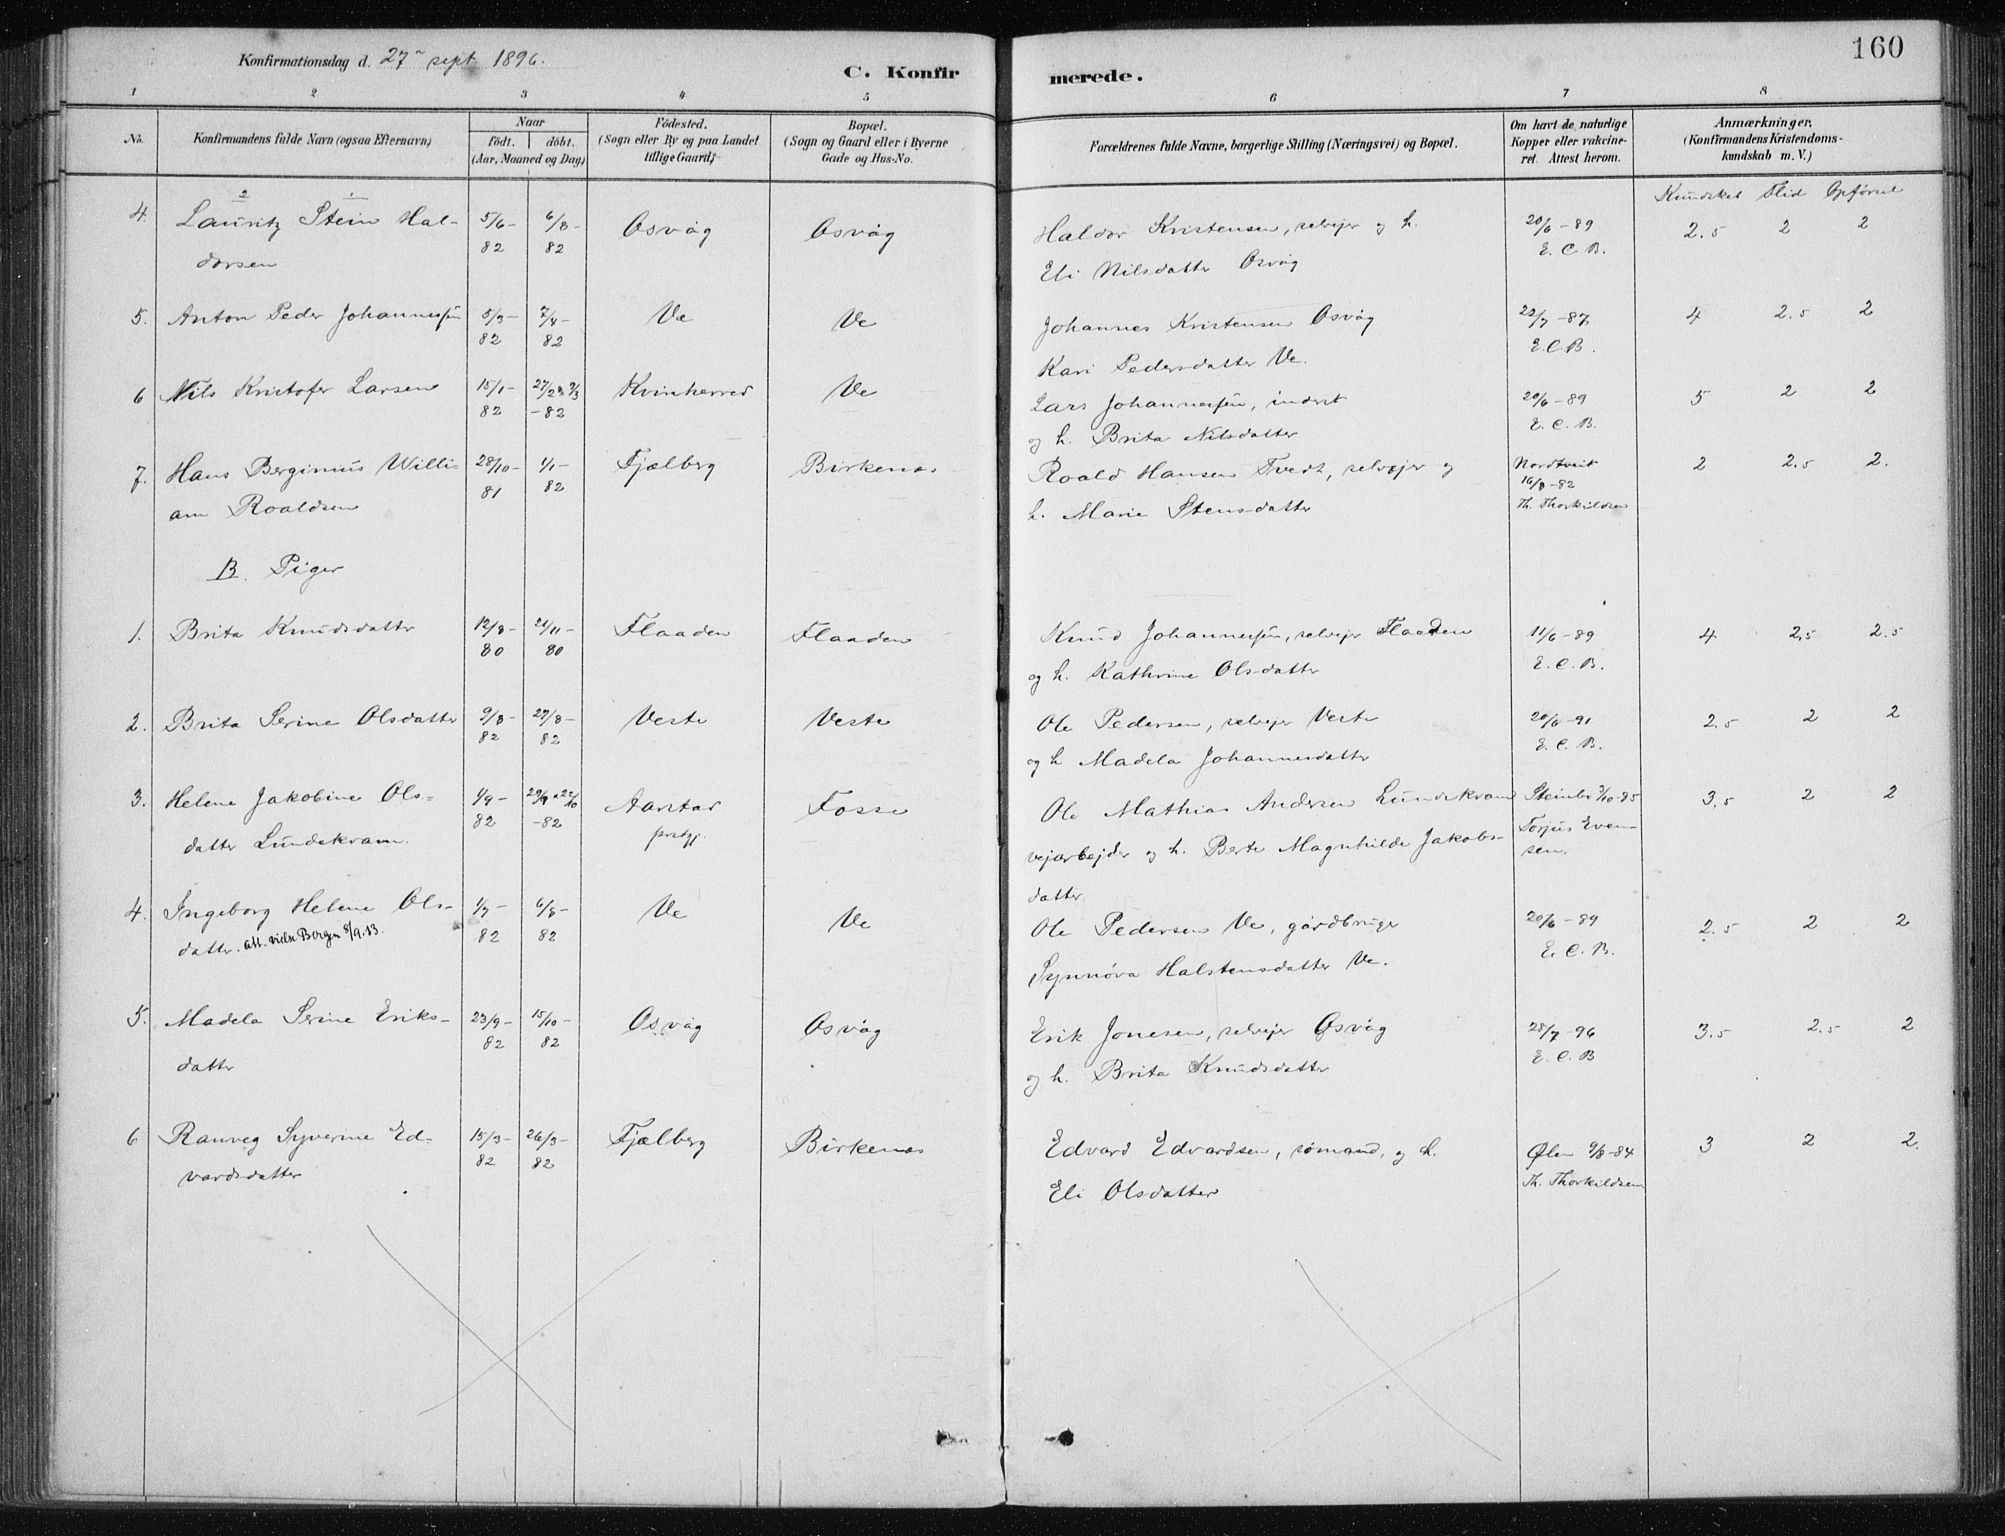 160
Konfirmationsdag d. 27de sept 1896.
C. Konfirmerede.
1 2 3 4 5 6 7 8
No.
Konfirmandens fulde Navn (ogsaa Efternavn)
Naar
födt. döbt.
(Aar, Maaned og Dag)
Födested.
(Sogn eller By og paa Landet
tillige Gaard)
Bopæl.
(Sogn og Gaard eller i Byerne
Gade og Hus-No.
Forældrenes fulde Navne, borgerlige Stilling (Næringsvei) og Bopæl.
Om havt de naturlige
Kopper eller vakcine-
ret. Attest herom.
Anmærkninger.
(Konfirmandens Kristendoms-
kundskab m. V.)
Kundskab Flid Opførsel
4. Lauritz Stein Hal- 5/6- 6/8- Osvåg Osvåg Haldor Kristensen, selvejer og h. 20/6-89 2.5 2 2
dorsen 82 82 Eli Nilsdatter Osvåg E. C. B.
5. Anton Peder Johannessen 5/3- 7/4- Ve Ve Johannes Kristensen Osvåg 22/7-87 4 2.5 2
82 82 Kari Pedersdatter Ve. E. C. B.
6 Nils Kristofer Larsen 15/1- 27/2 & 9/3 Kvinherred Ve Lars Johannessen, inderst 20/6-89 5 2 2
82 -82 og h. Brita Nilsdatter E. C. B.
7. Hans Berginius Willi- 28/10- 1/1- Fjælberg Birkenæs Roald Hansen Tvedt, selvejer og Nordtveit 2 2.5 2.
am Roaldsen 81 82 h. Marie Stensdatter 16/8-82
Th. Thorkildsen
B. Piger
1. Brita Knudsdatter 12/8- 21/11- Flaaden Flaaden Knud Johannessen, selvejer Flaaden 11/6-89 4 2.5 2.5
80 80 og h. Kathrine Olsdatter E. C. B.
2. Brita Serine Olsdatter 9/8- 27/8- Veste Veste Ole Pedersen, selvejer Veste 20/6-91 2.5 2 2
82 82 og h Madela Johannesdatter E. C. B.
3. Helene Jakobine Ols- 1/9- 29/9 & 22/10 Aarstad Fosse Ole Mathias Andersen Lundekvam Steinbø 3/10-85 3.5 2 2
datter Lundekvam. 82 -82 prstgj. vejarbejder og h. Berte Magnhilde Jakobs- Torjus Even-
datter sen.
4. Ingeborg Helene Ols- 1/7- 6/8- Ve Ve Ole Pedersen Ve, gårdbruger 20/6-89 2.5 2 2
datter. att. vielse Bergen 8/9.13. 82 82 Synnøva Halstensdatter Ve. E. C. B.
5. Madela Serine Eriks- 23/9- 15/10- Osvåg Osvåg Erik Jonesen, selvejer Osvåg 28/7-96 3.5 2.5 2
datter 82 82 og h. Brita Knudsdatter E. C. B
6 Ranveg Syverine Ed- 15/3- 26/3- Fjælberg Birkenæs Edvard Edvardsen, sømand, og h. Ølen 9/8-84 3 2 2.
vardsdatter 82 82 Eli Olsdatter Th. Thorkildsen